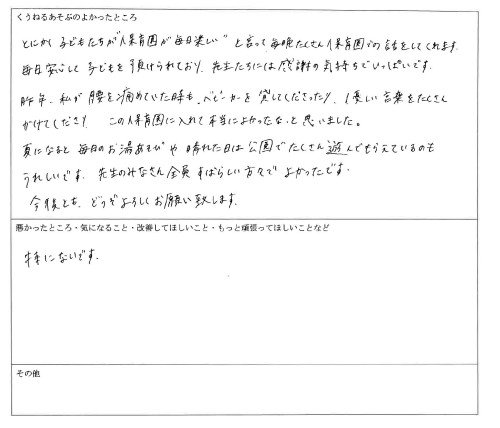 くうねるあそぶのよかったところ
とにかく子どもたちが"保育園が毎日楽しい"と言って毎晩たくさん保育園での話をしてくれます。
毎日安心して子どもを預けられており、先生たちには感謝の気持ちでいっぱいです。
昨年、私が腰を痛めていた時も、ベビーカーを貸してくださったり、優しい言葉をたくさん
かけてくださり、この保育園に入れて本当によかったな、と思いました。
夏になると毎日のお湯あそびや晴れた日は公園でたくさん遊んでもらえているのも
うれしいです。先生のみなさん全員すばらしい方々でよかったです。
今後とも、どうぞよろしくお願い致します。
悪かったところ・気になること・改善してほしいこと・もっと頑張ってほしいことなど
特にないです。
その他